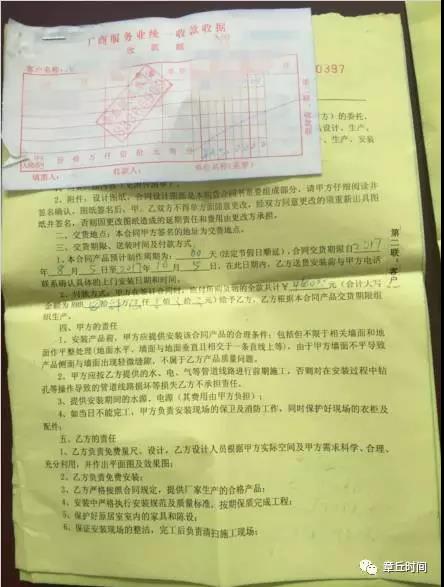 厂商服务业统一收款收据
收款联
客户名称:
佰 拾 万 仟 佰 拾 元 角 分
填票人: 收款人: 单位名称(盖章)
0397
方)的委托,
设计、生产、
、生产、安装
2、附件:设计图纸,合同设计图纸是本购货合同书重要组成部分,请甲方仔细阅读并
签名确认,图纸签名后,甲、乙双方不得单方面随意更改,经双方同意更改的须重新出具图
纸并签名,否则因更改图纸造成的延期责任和费用由更改方承担。
二、交货地点:本合同甲方签名的地址为交货地点。
三、交货期限、送装时间及付款方式
1、本合同产品预计制作周期为: 60 天(法定节假日顺延),合同交货期限自 2017
年 8 月 5 日至 2017 年 10 月 5 日,在此日期内,乙方送货安装前与甲方电话
联系确认具体的上门安装日期和时间。
2、付款方式:甲方在签订合同时,
元(合计大写
金额为 给予乙方,乙方根据本合同产品交货期限组
织生产。
四、甲方的责任
1、安装产品前,甲方应提供安装该合同产品的合理条件;包括但不限于相关墙面和地
面作平整处理(地面水平、墙面与地面垂直且相交于一条直线上等),由于甲方墙面不平导致
产品侧面与墙面出现轻微缝隙,不属于乙方产品质量问题。
2、甲方应按乙方提供的水、电、气等管道线路进行前期施工,否则对在安装过程中钻
孔等操作导致的管道线路损坏等损失乙方不承担责任。
3、提供安装期间的水源、电源(其费用由甲方负担);
4、如当日不能完工,甲方负责安装现场的保卫及消防工作,同时保护好现场的衣柜及
配件;
五、乙方的责任
1、乙方负责免费量尺、设计,乙方设计人员根据甲方实际空间及甲方需求科学、合理、
充分利用,并作出平面图及效果图;
2、乙方负责免费安装;
3、乙方严格按照合同规定,提供厂家生产的合格产品;
4、安装中严格执行安装规范及质量标准,按期保质完成工程;
5、保护好原居室室内的家具和陈设;
6、保证安装现场的整洁,完工后负责清扫施工现场;
第二联:客户
章丘时间